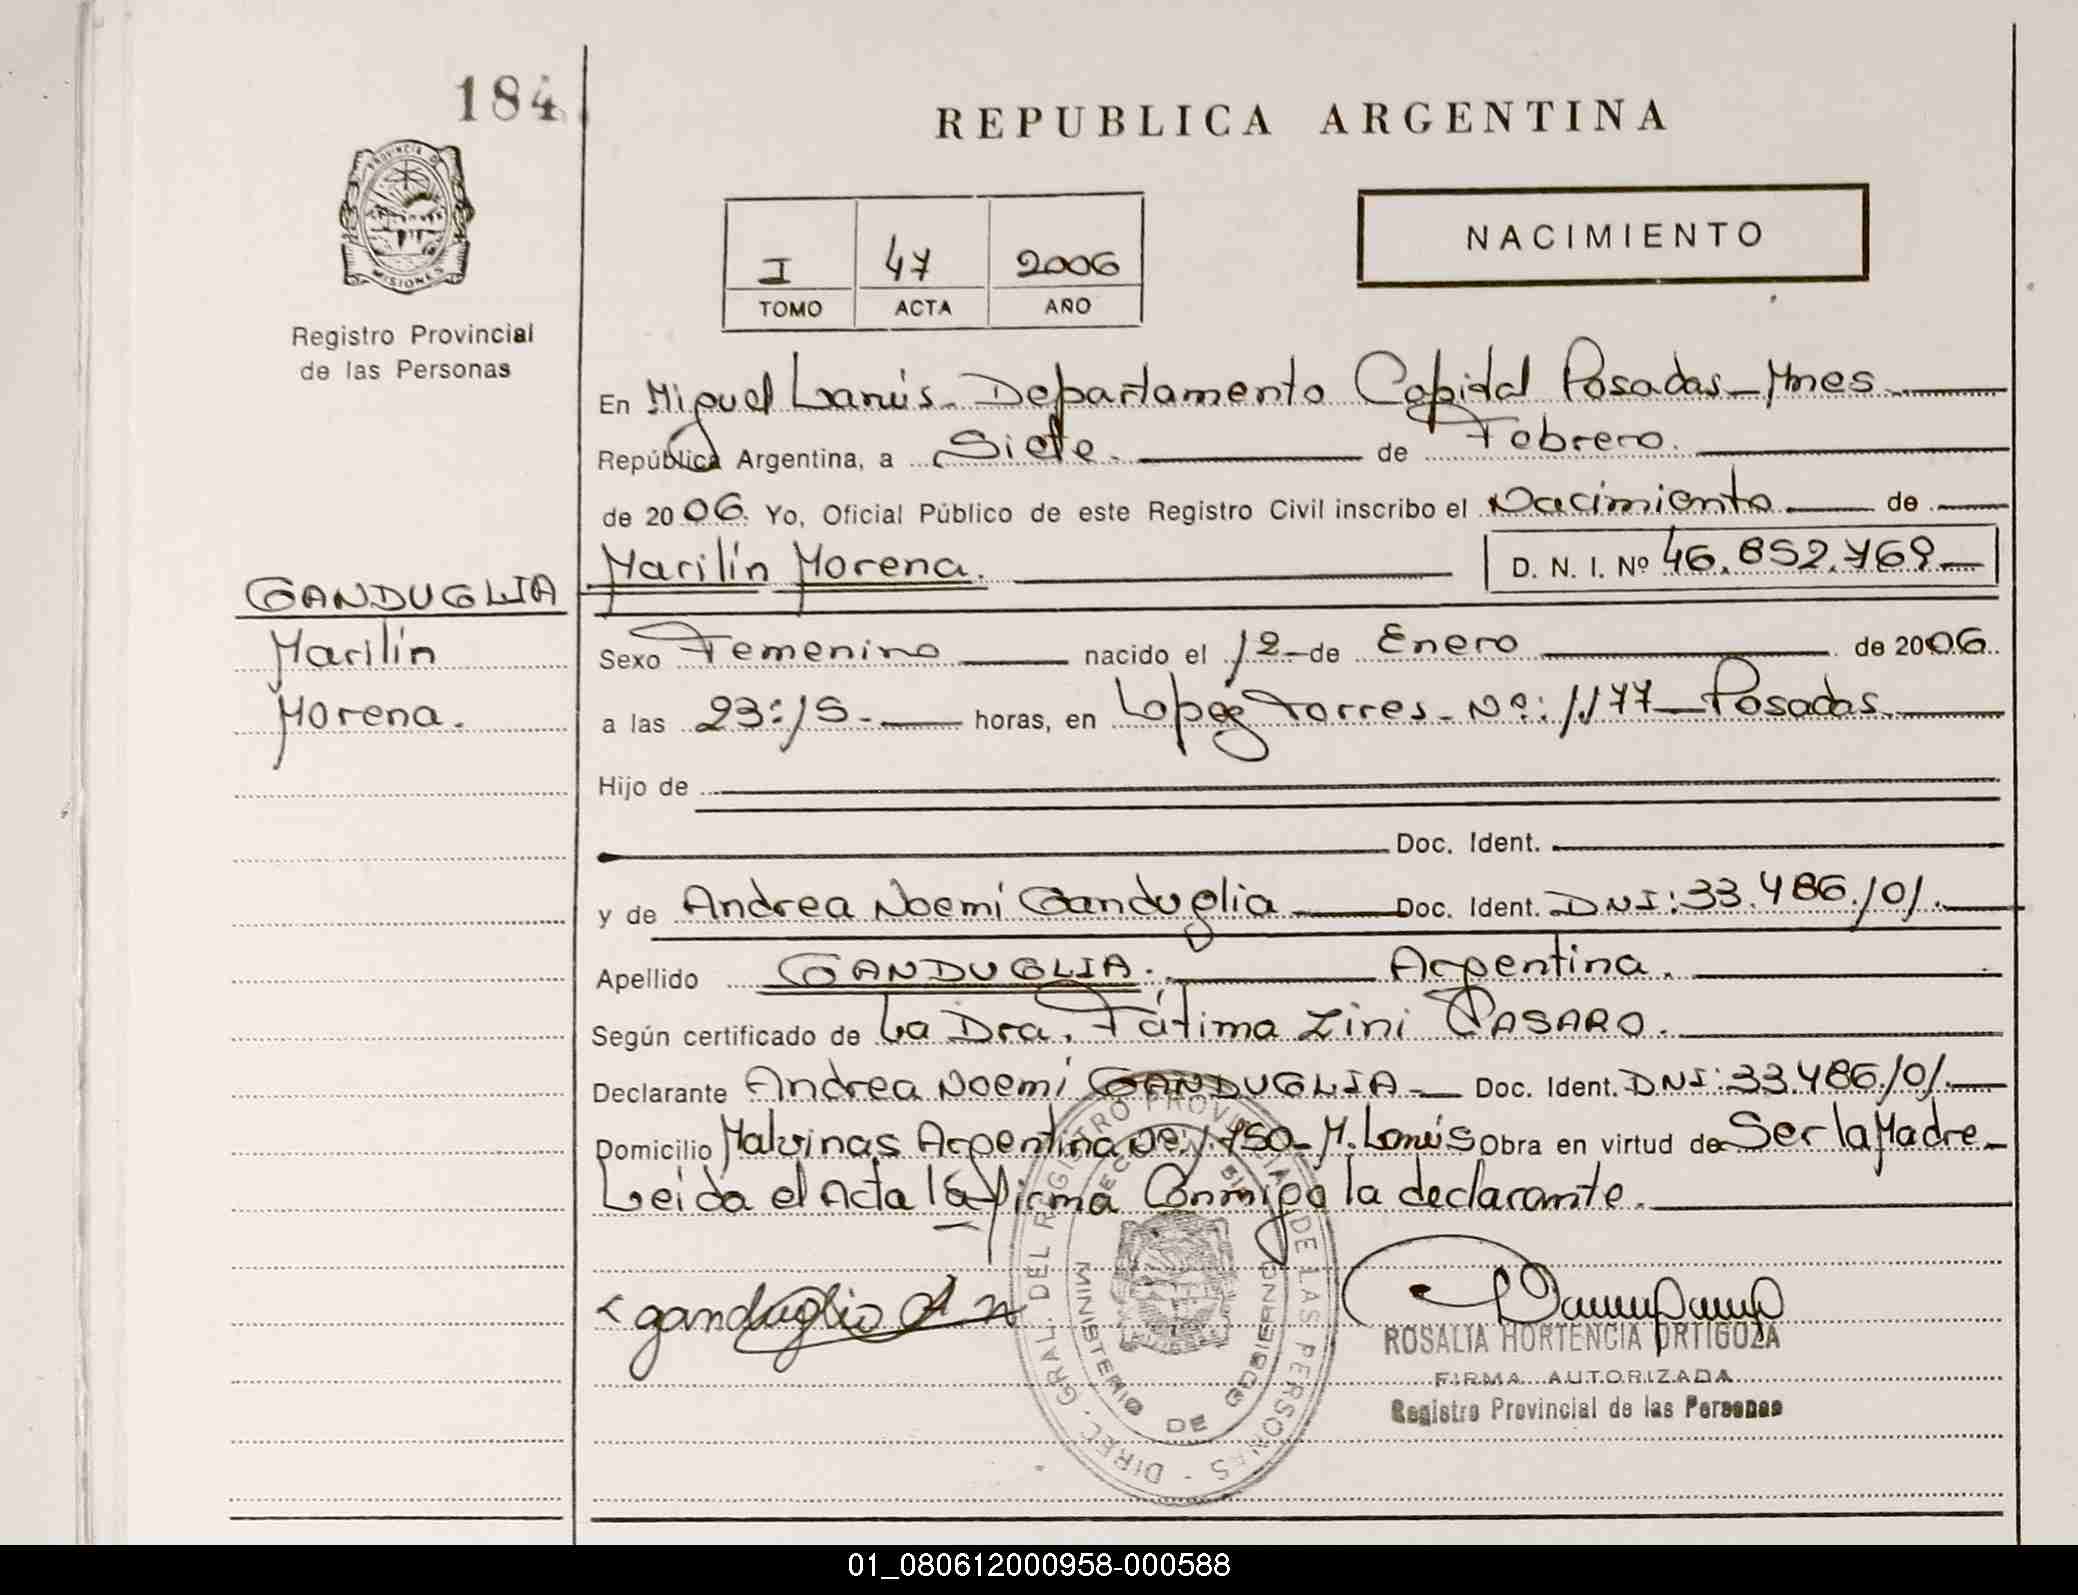 184
REPUBLICA ARGENTINA
PROVINCIA DE
MISIONES
Registro Provincial
de las Personas
I 47 2006
TOMO ACTA AÑO
NACIMIENTO
En Miguel Lanús. Departamento Capital Posadas - Mnes
República Argentina, a Siete. de Febrero.
de 2006. Yo, Oficial Público de este Registro Civil inscribo el Nacimiento de
Marilín Morena. D. N. I. Nº 46.852.769
GANDUGLIA
Marilín
Morena.
Sexo Femenino nacido el 12 de Enero de 2006.
a las 23:15. horas, en Lopez Torres - Nº: 1177 - Posadas
Hijo de
Doc. Ident.
y de Andrea Noemí Ganduglia Doc. Ident. DNI: 33.486.101.
Apellido GANDUGLIA. Argentina.
Según certificado de La Dra. Fátima Zini PASARO.
Declarante Andrea Noemí GANDUGLIA - Doc. Ident. DNI: 33.486.101.
Domicilio Malvinas Argentina 1750 - M. Lanús Obra en virtud de Ser la Madre
Leida el Acta la firma Conmigo la declarante.
ganduglia A N
DIREC. GRAL. DEL REGISTRO PROVINCIAL DE LAS PERSONAS
MINISTERIO DE GOBIERNO
ROSALIA HORTENCIA ORTIGOZA
FIRMA AUTORIZADA
Registro Provincial de las Personas
01_080612000958-000588